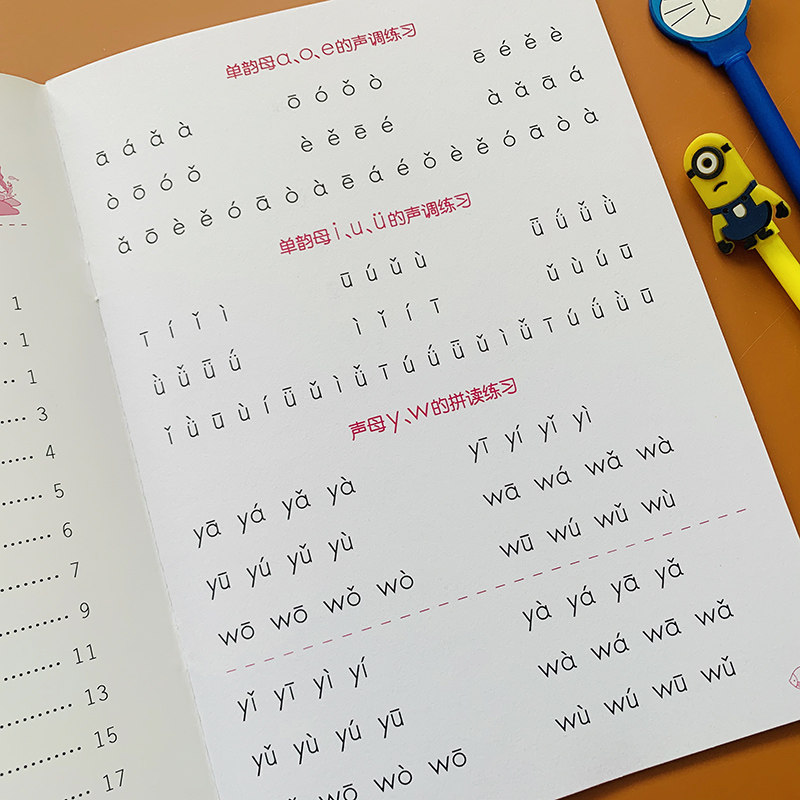 1
1
1
3
4
5
6
7
9
11
13
15
17
单韵母a、o、e的声调练习
ā á ǎ à ō ó ǒ ò ē é ě è
ò ō ó ǒ è ě ē é à ǎ ā á
ǎ ō è ě ó ā ò à ē á é ǒ è ě ó ā ò à
单韵母i、u、ü的声调练习
ī í ǐ ì ū ú ǔ ù ǖ ǘ ǚ ǜ
ǜ ǚ ǖ ǘ ì ǐ í ī ǔ ù ú ū
ǐ ǜ ū ù í ǖ ǔ ì ǚ ī ú ǘ ǖ ǔ ì ǚ ī ú ǘ ǜ ū
声母y、w的拼读练习
yā yá yǎ yà yī yí yǐ yì
yū yú yǔ yù wā wá wǎ wà
wō wō wǒ wò wū wú wǔ wù
yǐ yī yì yí yà yá yā yǎ
yǔ yù yú yū wà wá wā wǎ
wō wò wō wù wú wū wǔ